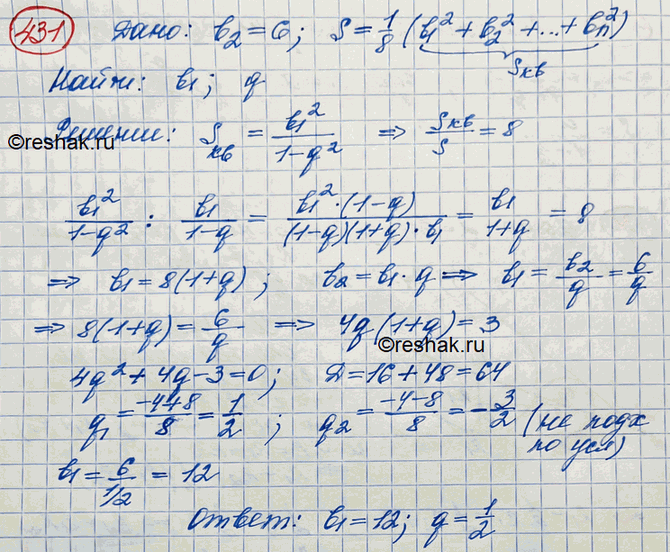 431 Дано: b₂ = 6; S = 1/8 (b₁² + b₂² + ... + bₙ²)
Sкв
Найти: b₁; q
Решение: Sкв = b₁²/(1-q²) ⇒ Sкв/S = 8
©reshak.ru
b₁²/(1-q²) : b₁/(1-q) = b₁²·(1-q)/((1-q)(1+q)·b₁) = b₁/(1+q) = 8
⇒ b₁ = 8(1+q); b₂ = b₁·q ⇒ b₁ = b₂/q = 6/q
⇒ 8(1+q) = 6/q ⇒ 4q(1+q) = 3
©reshak.ru
4q² + 4q - 3 = 0; D = 16 + 48 = 64
q₁ = (-4+8)/8 = 1/2; q₂ = (-4-8)/8 = -3/2 (не подх
по усл)
b₁ = 6/(1/2) = 12
Ответ: b₁ = 12; q = 1/2